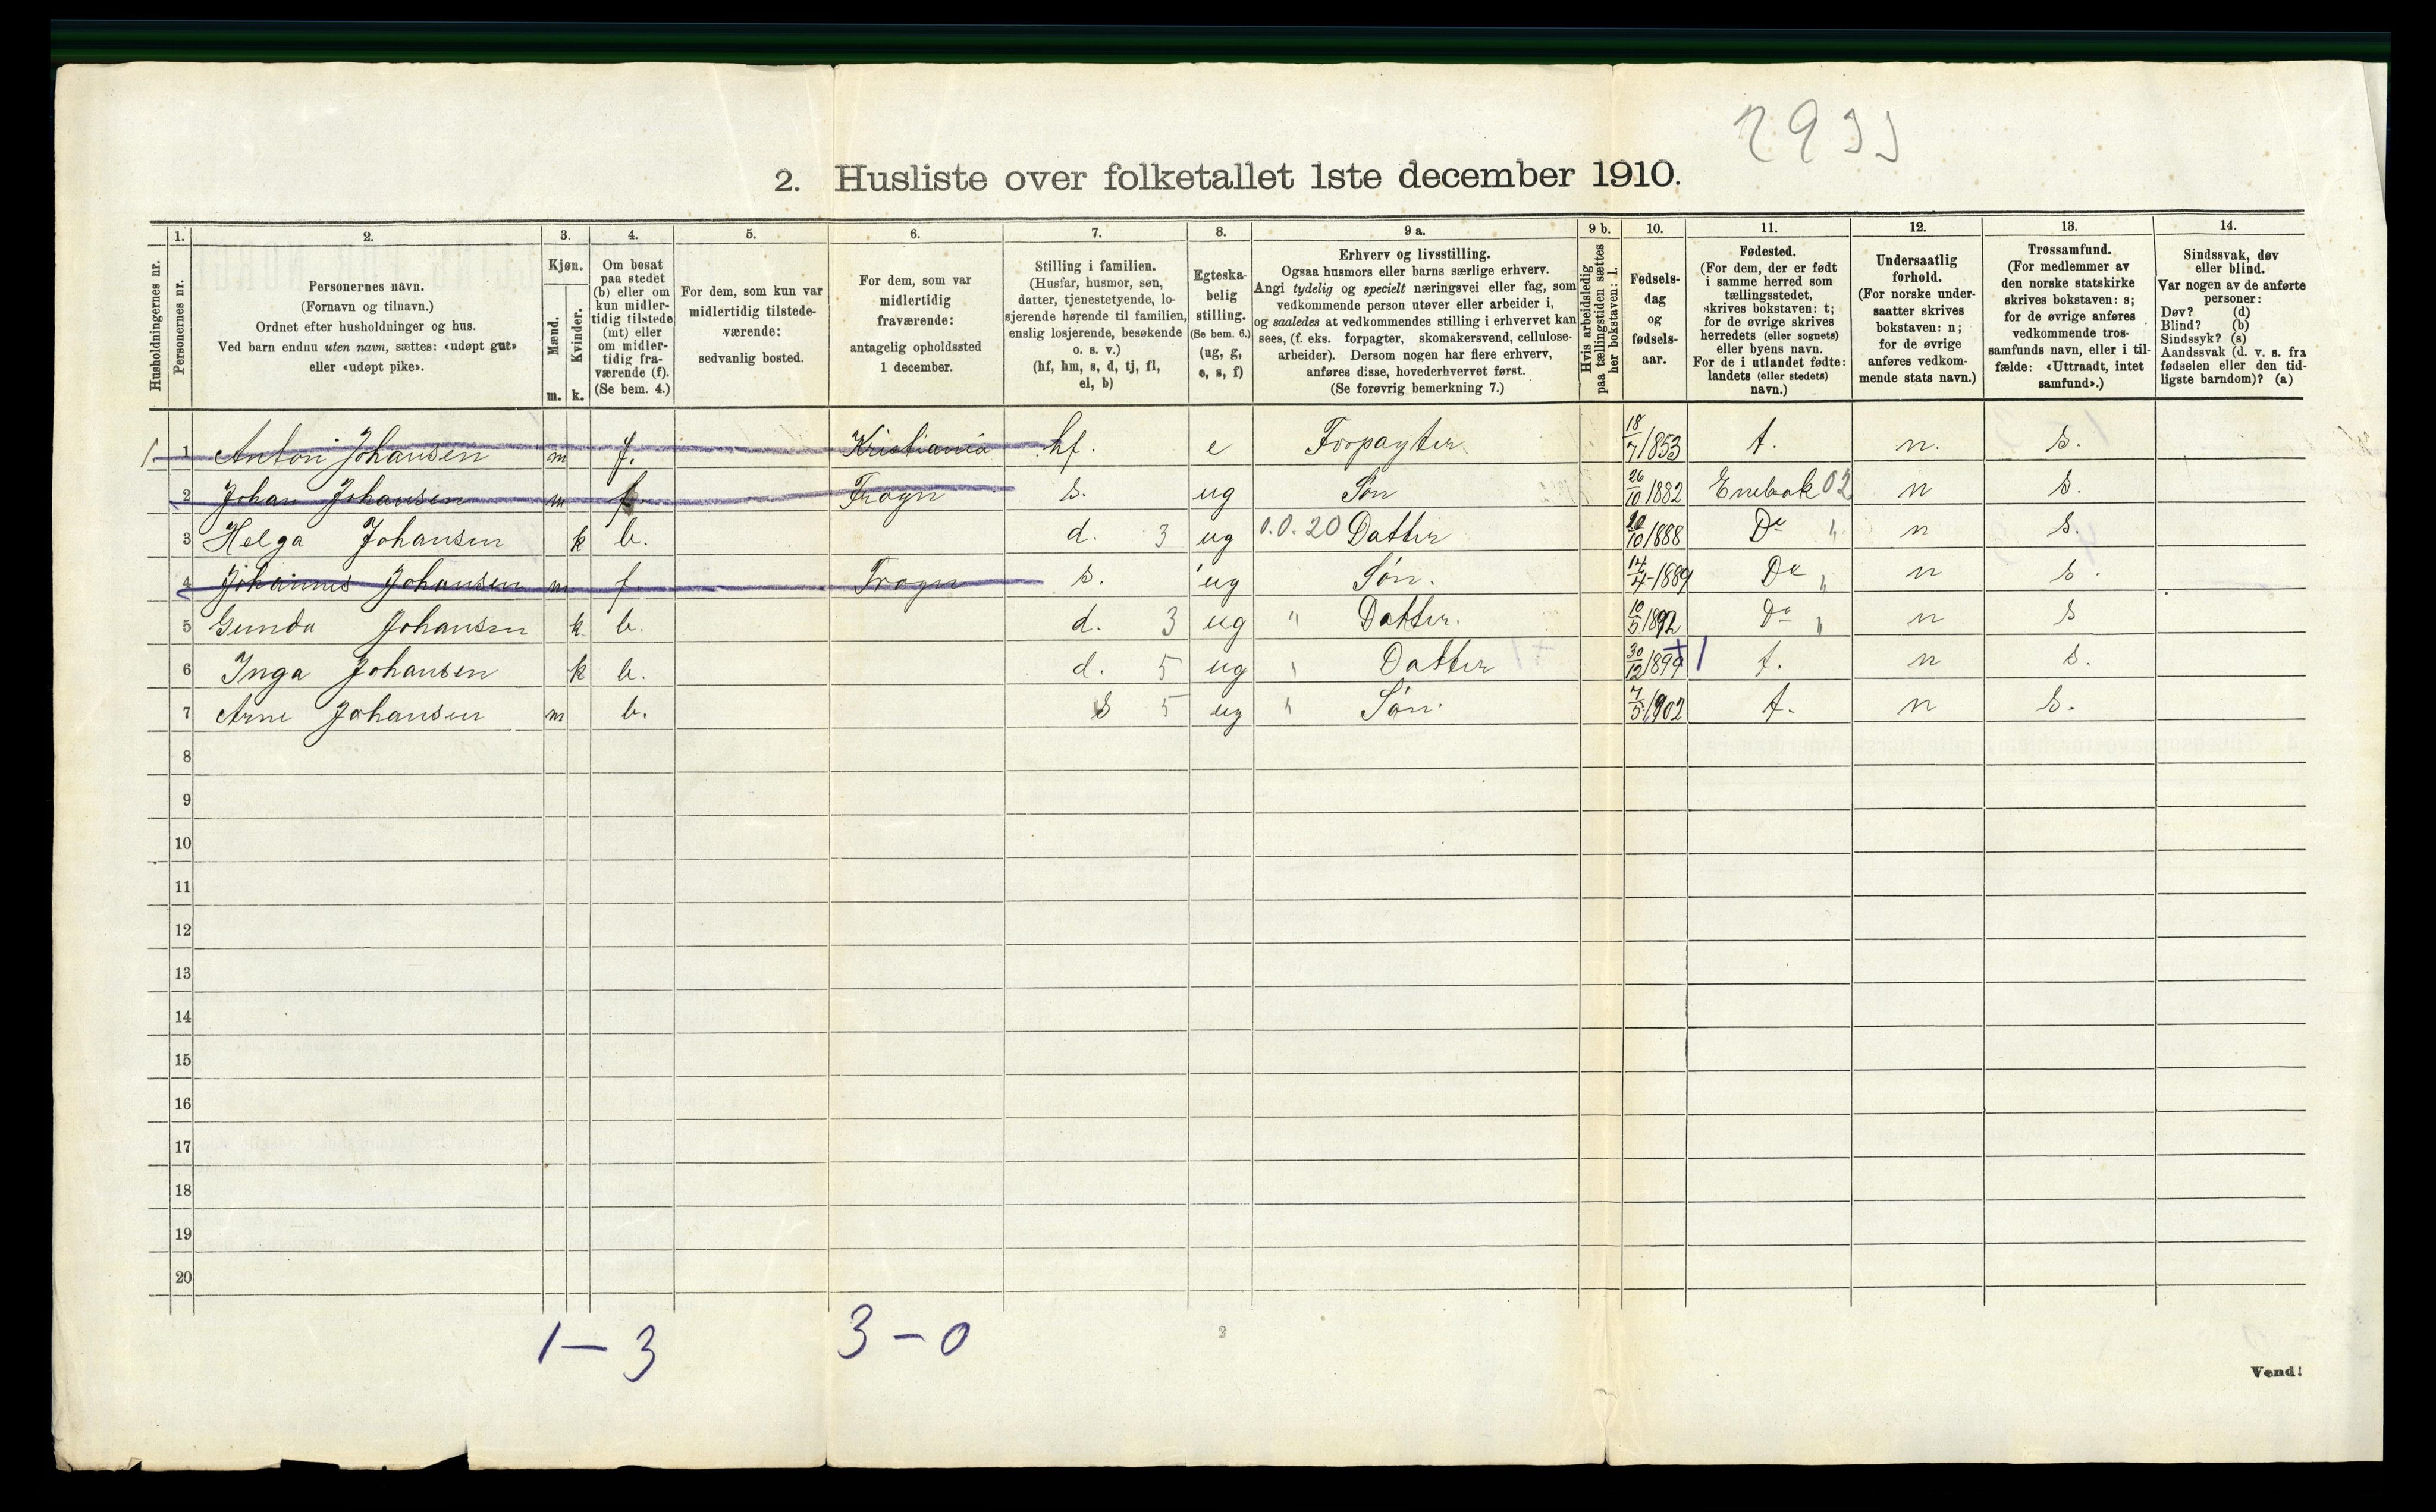 2933
2. Husliste over folketallet 1ste december 1910.
Husholdningernes nr.
1.
Personernes nr.
2.
Personernes navn.
(Fornavn og tilnavn.)
Ordnet efter husholdninger og hus.
Ved barn endnu uten navn, sættes: «udøpt gut»
eller «udøpt pike».
3.
Kjøn.
Mænd.
Kvinder.
m. k.
4.
Om bosat
paa stedet
(b) eller om
kun midler-
tidig tilstede
(mt) eller
om midler-
tidig fra-
værende (f).
(Se bem. 4.)
5.
For dem, som kun var
midlertidig tilstede-
værende:
sedvanlig bosted.
6.
For dem, som var
midlertidig
fraværende:
antagelig opholdssted
1 december.
7.
Stilling i familien.
(Husfar, husmor, søn,
datter, tjenestetyende, lo-
sjerende hørende til familien,
enslig losjerende, besøkende
o. s. v.)
(hf, hm, s, d, tj, fl,
el, b)
8.
Egteska-
belig
stilling.
(Se bem. 6.)
(ug, g,
e, s, f)
9 a.
Erhverv og livsstilling.
Ogsaa husmors eller barns særlige erhverv.
Angi tydelig og specielt næringsvei eller fag, som
vedkommende person utøver eller arbeider i,
og saaledes at vedkommendes stilling i erhvervet kan
sees, (f. eks. forpagter, skomakersvend, cellulose-
arbeider). Dersom nogen har flere erhverv,
anføres disse, hovederhvervet først.
(Se forøvrig bemerkning 7.)
9 b.
Hvis arbeidsledig
paa tællingstiden sættes
her bokstaven: l.
10.
Fødsels-
dag
og
fødsels-
aar.
11.
Fødested.
(For dem, der er født
i samme herred som
tællingsstedet,
skrives bokstaven: t;
for de øvrige skrives
herredets (eller sognets)
eller byens navn.
For de i utlandet fødte:
landets (eller stedets)
navn.)
12.
Undersaatlig
forhold.
(For norske under-
saatter skrives
bokstaven: n;
for de øvrige
anføres vedkom-
mende stats navn.)
13.
Trossamfund.
(For medlemmer av
den norske statskirke
skrives bokstaven: s;
for de øvrige anføres
vedkommende tros-
samfunds navn, eller i til-
fælde: «Uttraadt, intet
samfund».)
14.
Sindssvak, døv
eller blind.
Var nogen av de anførte
personer:
Døv? (d)
Blind? (b)
Sindssyk? (s)
Aandssvak (d. v. s. fra
fødselen eller den tid-
ligste barndom)? (a)
1 1 Anton Johansen m f. Kristiania hf. e Forpagter. 18/7 1853 t. n. s.
2 Johan Johansen m f Frogn s. ug Søn 26/10 1882 Enebak 02 n s.
3 Helga Johansen k b. d. 3 ug 0.0.20 Datter 20/10 1888 Do " n s.
4 Johannes Johansen m f. Frogn s. ug Søn. 14/4-1889 Do " n s.
5 Gunda Johansen k b. d. 3 ug " Datter. 10/5 1892 Do " n s
6 Inga Johansen k b. d. 5 ug " Datter 30/12 1899 +1 t. n s.
7 Arne Johansen m b. s 5 ug " Søn. 7/5 1902 t. n s.
8
9
10
11
12
13
14
15
16
17
18
19
20
1 – 3 3 – 0
Vend!